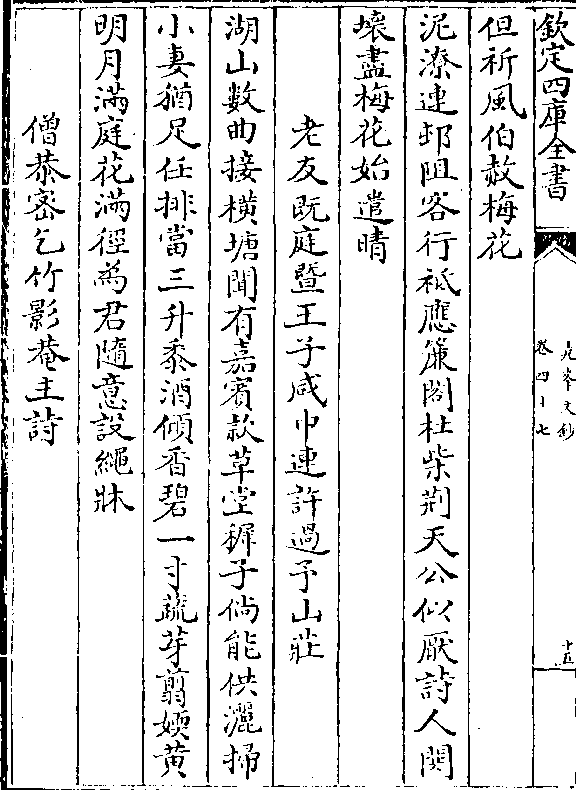 欽定四庫全書
堯峯文鈔
卷四十七
十五
但祈風伯赦梅花
泥潦連邨阻客行祗應簾閣杜柴荆天公似厭詩人閙
壊盡梅花始遣晴
老友旣庭暨王子咸巾連許過予山莊
湖山數曲接横塘聞有嘉賓款草堂穉子倘能供灑掃
小妻猶足任排當三升黍酒傾香碧一寸蔬芽翦嫰黄
明月滿庭花滿徑為君隨意設繩牀
僧恭密乞竹影菴主詩